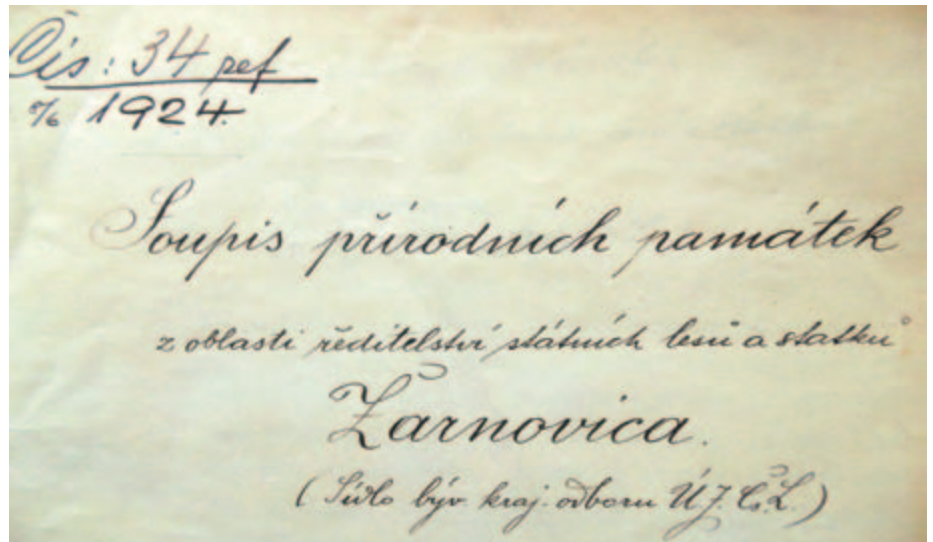 Čís: 34 pef
1924.
Soupis přírodních památek
z oblasti ředitelství státních lesů a statků
Žarnovica.
(Sídlo býv. kraj. odboru Ú.J.Č.L.)